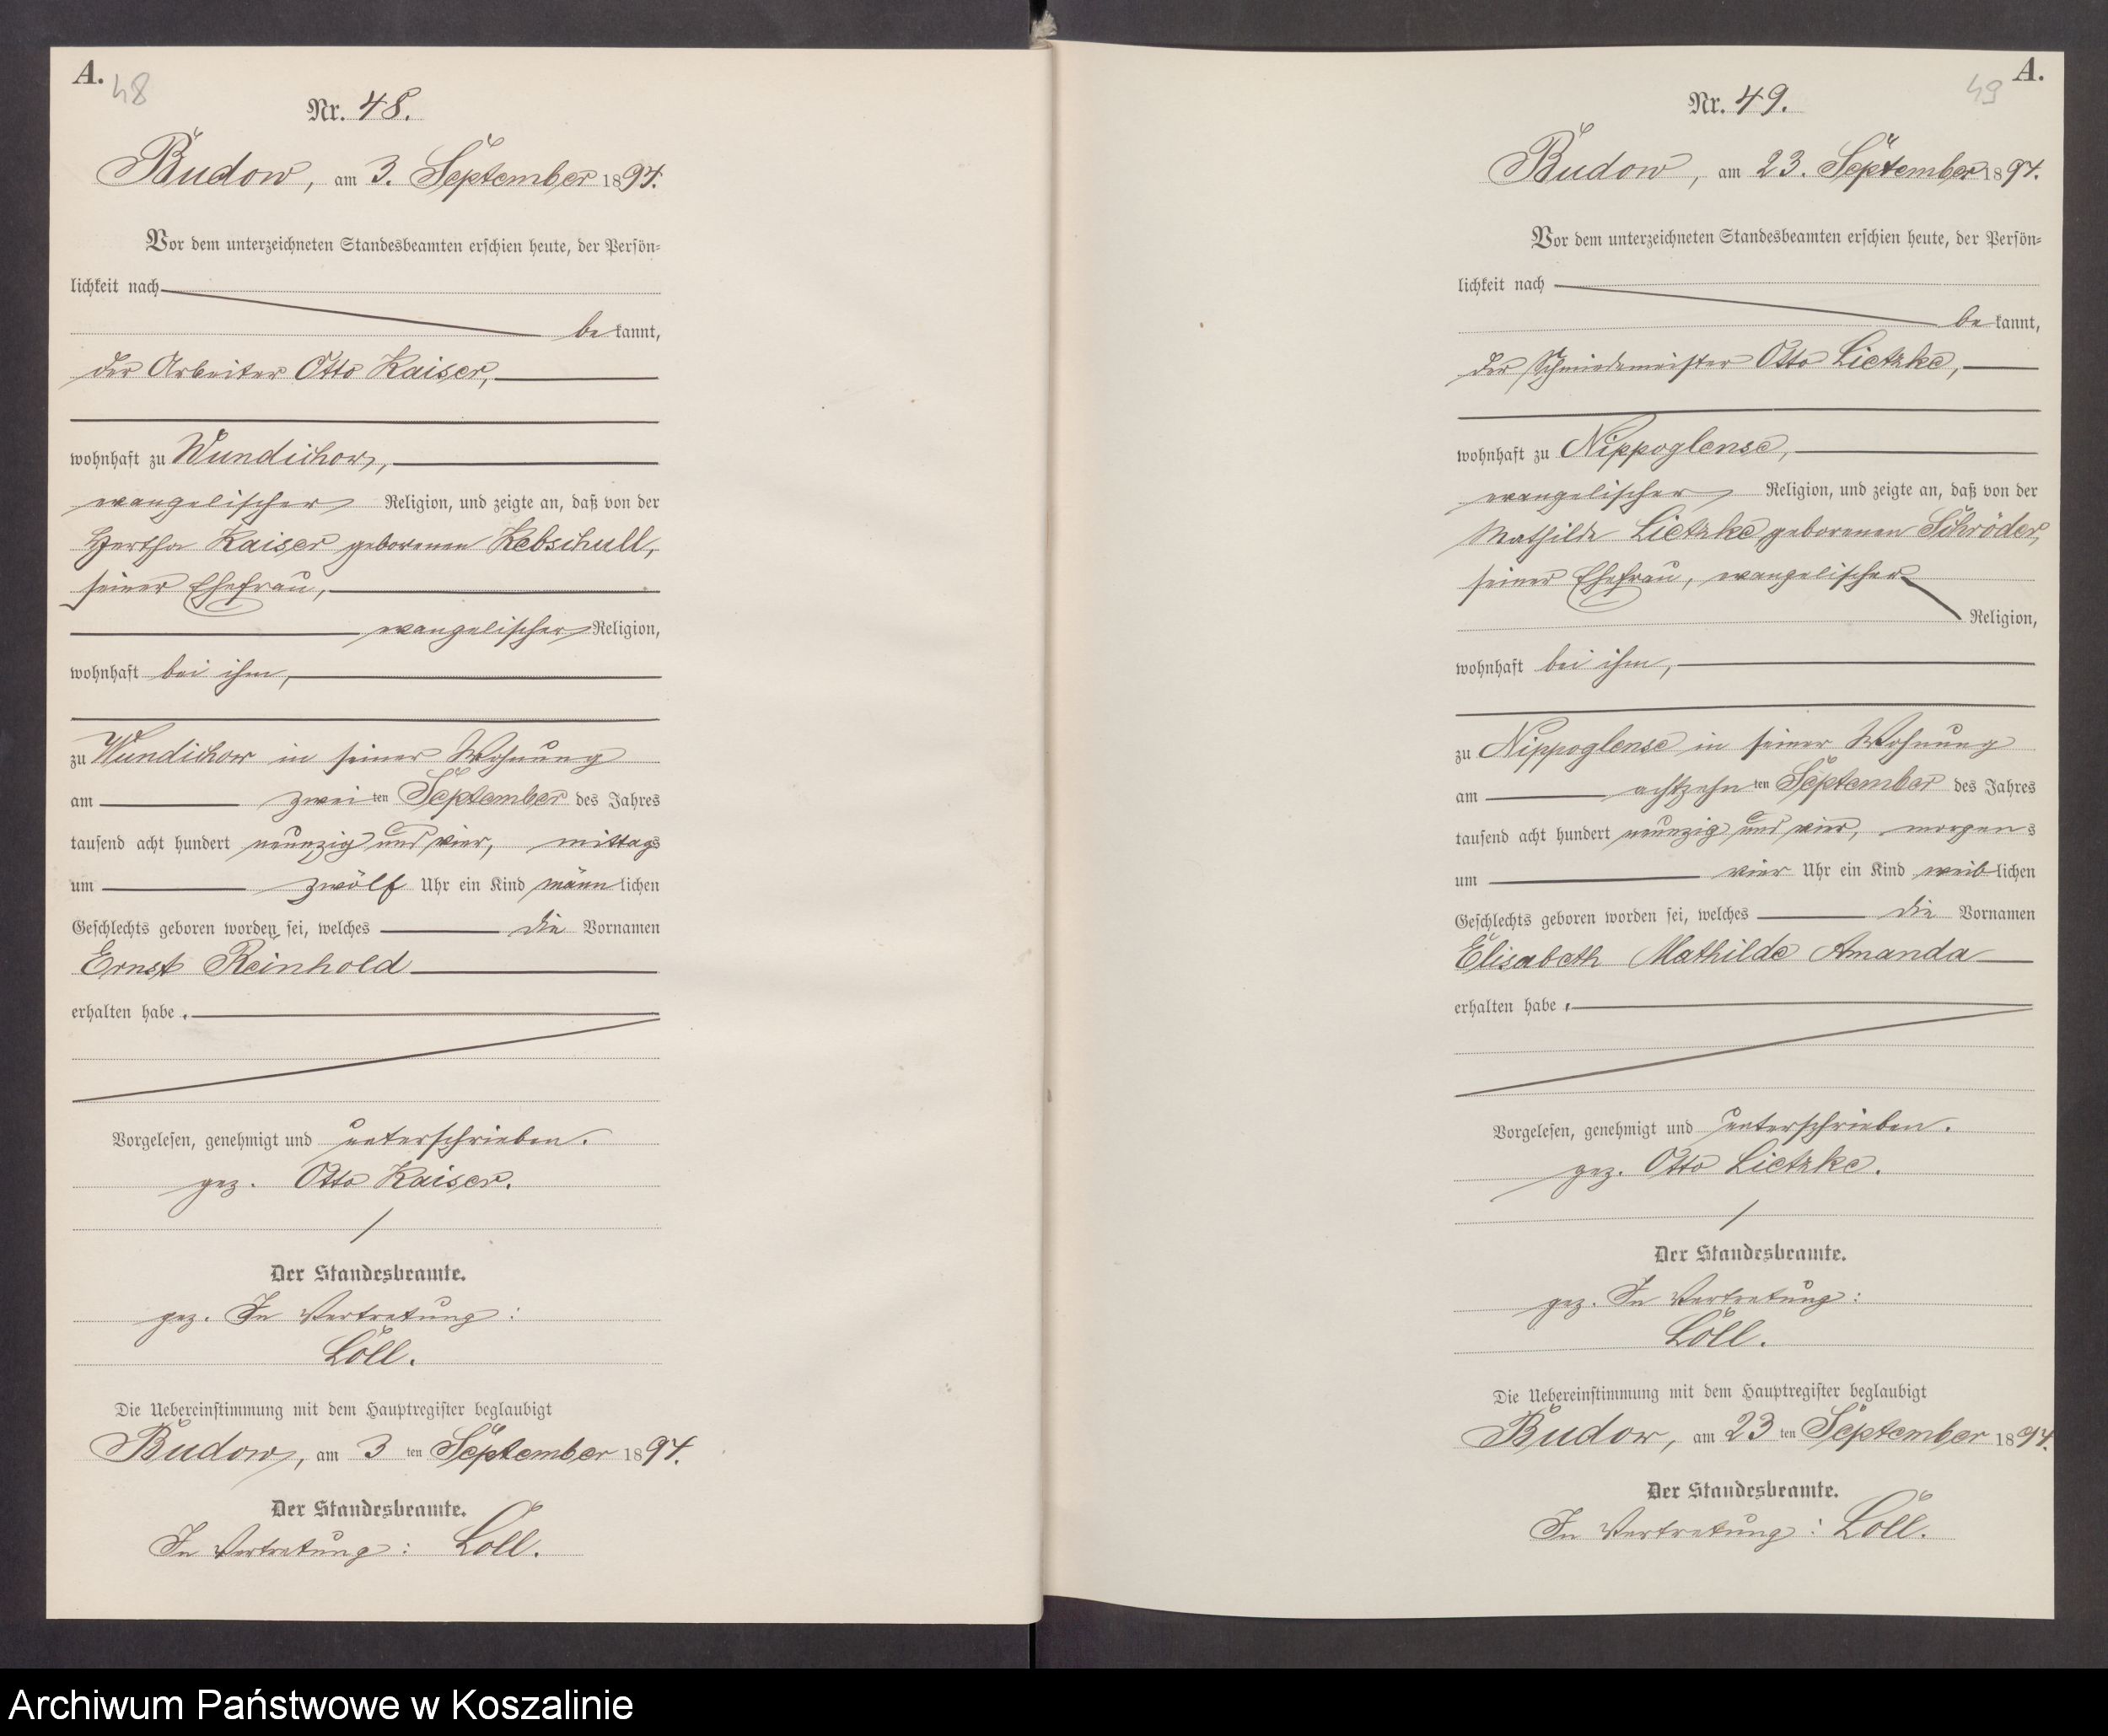 A.
48
Nr. 48.
Budow, am 3. September 1894.
Vor dem unterzeichneten Standesbeamten erschien heute, der Persön-
lichkeit nach
be kannt,
der Arbeiter Otto Kaiser,
wohnhaft zu Wundichow,
evangelischer Religion, und zeigte an, daß von der
Hertha Kaiser geborenen Kebschull,
seiner Ehefrau,
evangelischer Religion,
wohnhaft bei ihm,
zu Wundichow in seiner Wohnung
am zwei ten September des Jahres
tausend acht hundert neunzig und vier, mittags
um zwölf Uhr ein Kind männ lichen
Geschlechts geboren worden sei, welches die Vornamen
Ernst Reinhold
erhalten habe.
Vorgelesen, genehmigt und unterschrieben.
gez. Otto Kaiser.
Der Standesbeamte.
gez. In Vertretung:
Löll.
Die Uebereinstimmung mit dem Hauptregister beglaubigt
Budow, am 3 ten September 1894.
Der Standesbeamte.
In Vertretung: Löll.
A.
49
Nr. 49.
Budow, am 23. September 1894.
Vor dem unterzeichneten Standesbeamten erschien heute, der Persön-
lichkeit nach
be kannt,
der Schmiedemeister Otto Lietzke,
wohnhaft zu Nippoglense,
evangelischer Religion, und zeigte an, daß von der
Mathilde Lietzke geborenen Schröder,
seiner Ehefrau, evangelischer
Religion,
wohnhaft bei ihm,
zu Nippoglense in seiner Wohnung
am achtzehn ten September des Jahres
tausend acht hundert neunzig und vier, morgens
um vier Uhr ein Kind weib lichen
Geschlechts geboren worden sei, welches die Vornamen
Elisabeth Mathilde Amanda
erhalten habe.
Vorgelesen, genehmigt und unterschrieben.
gez. Otto Lietzke.
Der Standesbeamte.
gez. In Vertretung:
Löll.
Die Uebereinstimmung mit dem Hauptregister beglaubigt
Budow, am 23 ten September 1894.
Der Standesbeamte.
In Vertretung: Löll.
Archiwum Państwowe w Koszalinie